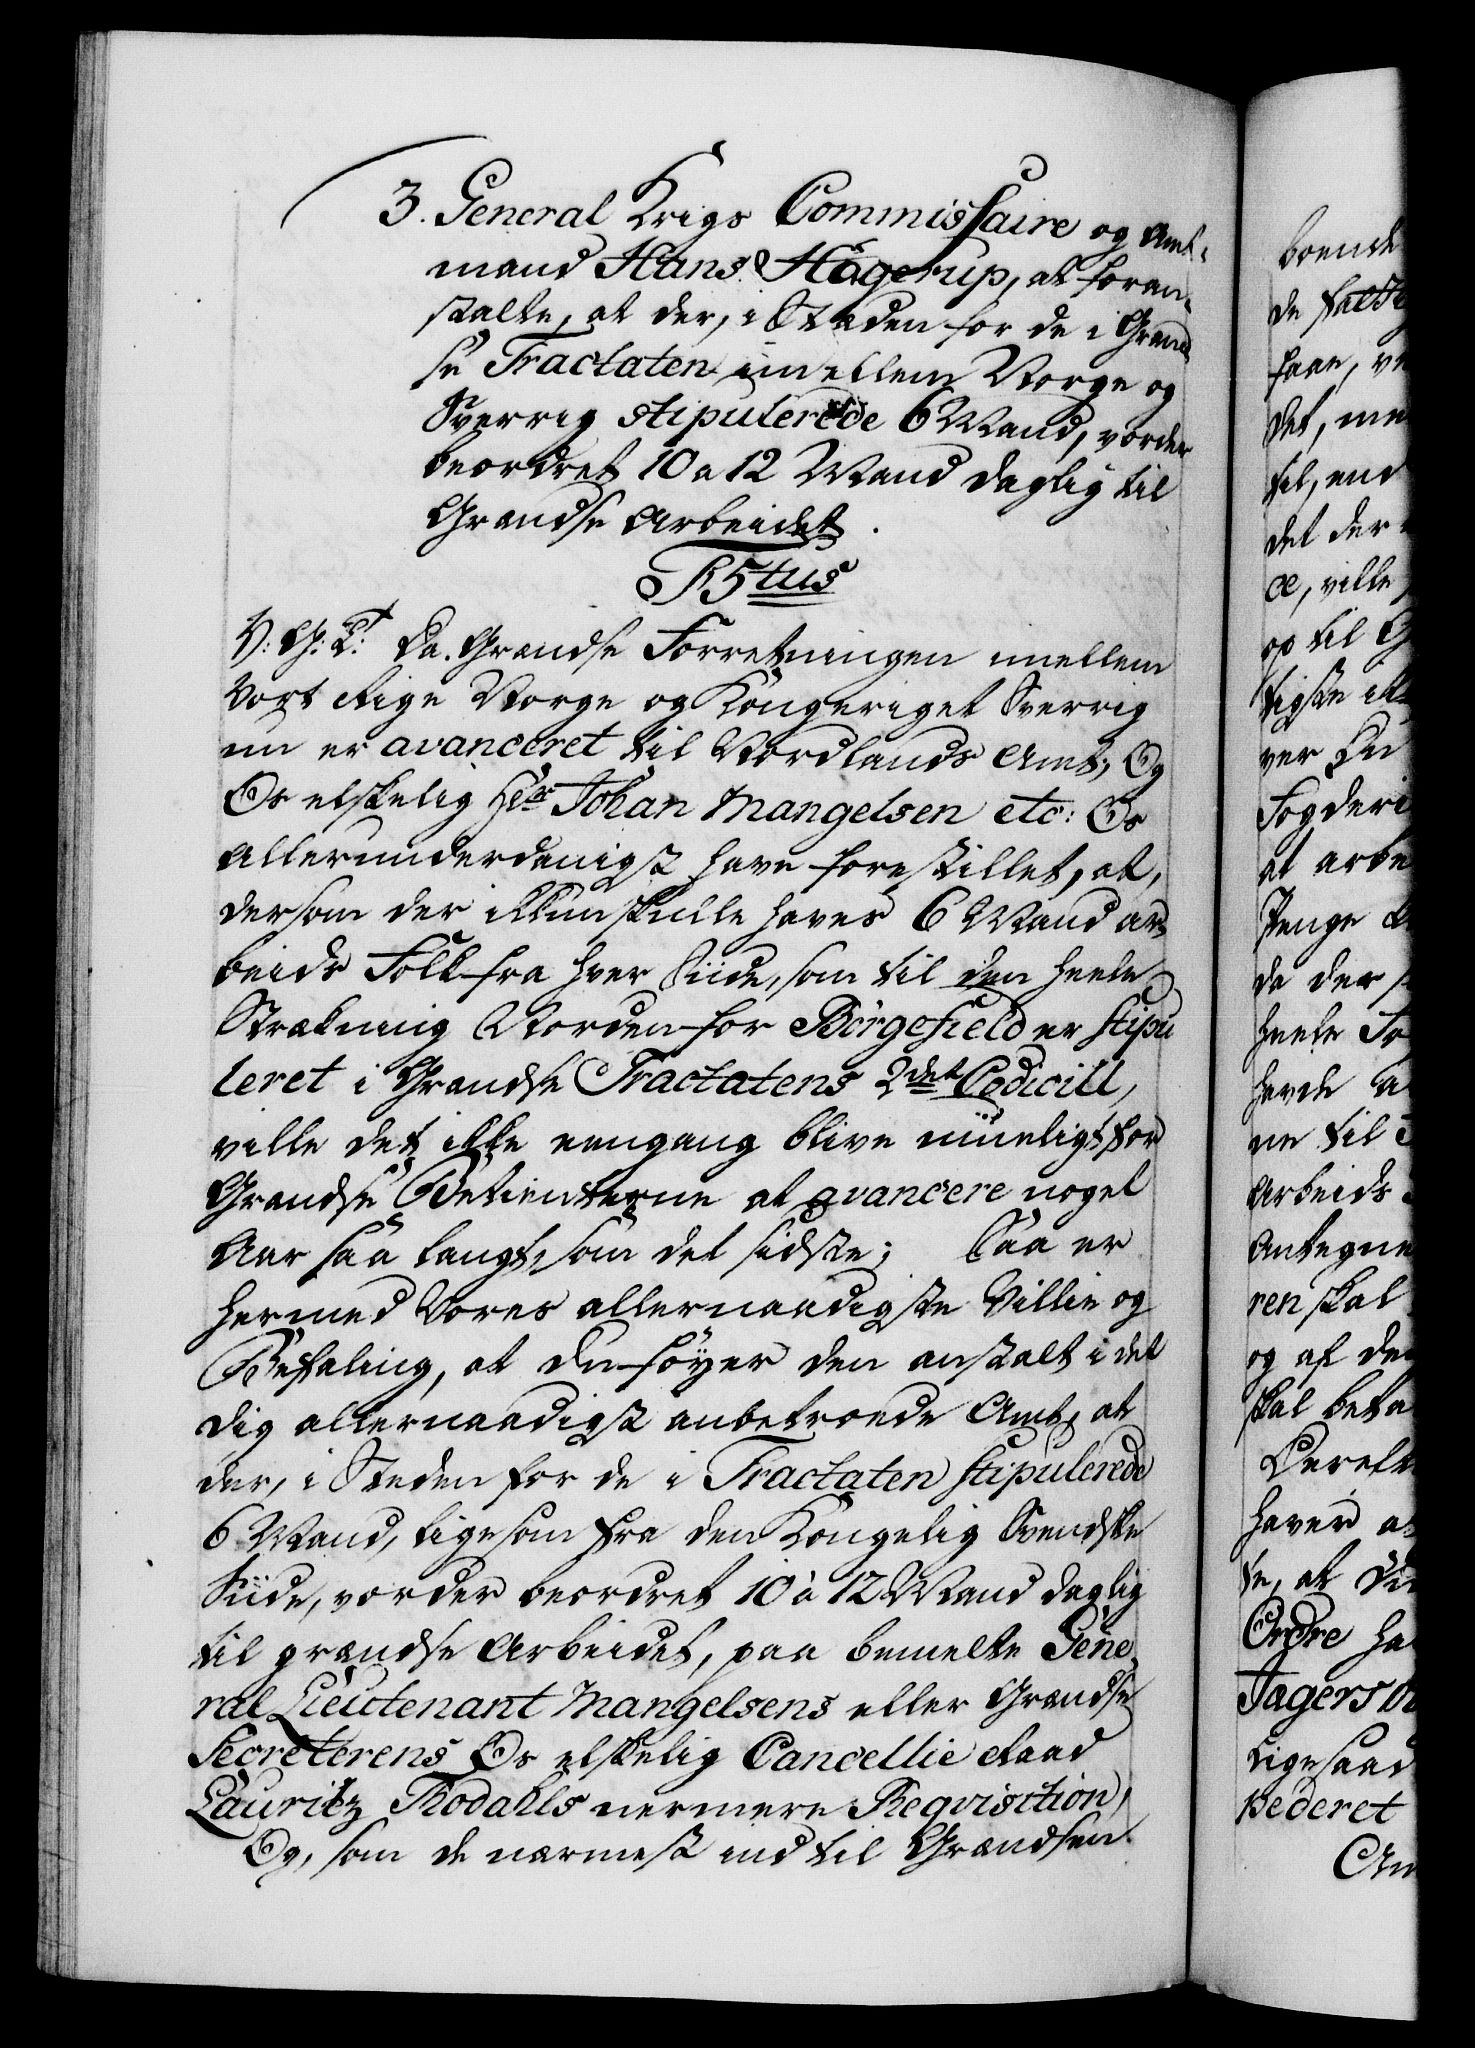 3. General Krigs Commissaire og Amt-
mand Hans Hagerup, at foran-
stalte, at der, i Stæden for de i Grænd
se Tractaten imellem Norge og
Sverrig stipulerede 6 Mand, vorder
beordret 10 a 12 Mand daglig til
Grændse Arbeidet.
F 5tus
V: G: T: Da Grændse Forretningen imellem
Vort Rige Norge og Kongeriget Sverrig
nu er avanceret til Nordlands Amt, Og
Os elskelig Hr Johan Mangelsen etc: Os
allerunderdanigst have forestillet, at,
dersom der ikkun skulle haves 6 Mand ar-
beids Folk fra hver Siide, som til den heele
Strækning Norden for Börgefield er stipu
leret i Grændse Tractatens 2det Codicill,
ville det ikke eengang blive mueligt for
Grændse Betienterne at avancere noget
Aar saa langt, som det sidste; Saa er
hermed Vores allernaadigste Villie og
Befaling, at du föyer den anstalt i det
dig allernaadigst anbetroede Amt, at
der, i Steden for de i Tractaten stipulerede
6 Mand, ligesom fra den Kongelig Svendske
Siide, vorder beordret 10 à 12 Mand daglig
til grændse Arbeidet, paa bemelte Gene-
ral Lieutenant Mangelsens eller Grændse
Secreterens Os elskelig Cancellie Raad
Lauritz Thodahls nermere Reqvisition,
Og, som de nærmest ind til Grændsen
boende
de
faae,
det, me
til, end
det der
æ, ville
op til
ver
Fogderi
at arbe
Penge
da der
heele
havde
ne til
Arbeids
Antegne
ren skal
og af de
skal beta
haver
se, at
Ordre ha
Jagers
ligesaa
pederet